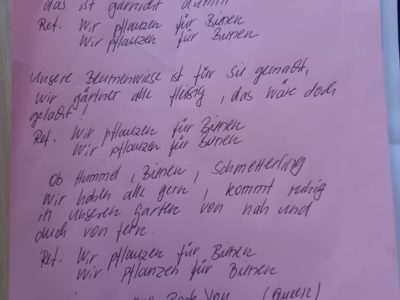 das ist garnicht dumm
Ref. Wir pflanzen für Bienen
Wir pflanzen für Bienen
Unsere Blumenwiese ist für Sie gemacht,
wir gärtner alle fleißig, das wäre doch
gelacht!
Ref. Wir pflanzen für Bienen
Wir pflanzen für Bienen
Ob Hummel, Bienen, Schmetterling
wir haben alle gern, kommt ruhig
in unseren Garten von nah und
auch von fern.
Ref. Wir pflanzen für Bienen
Wir pflanzen für Bienen
You (Queen)